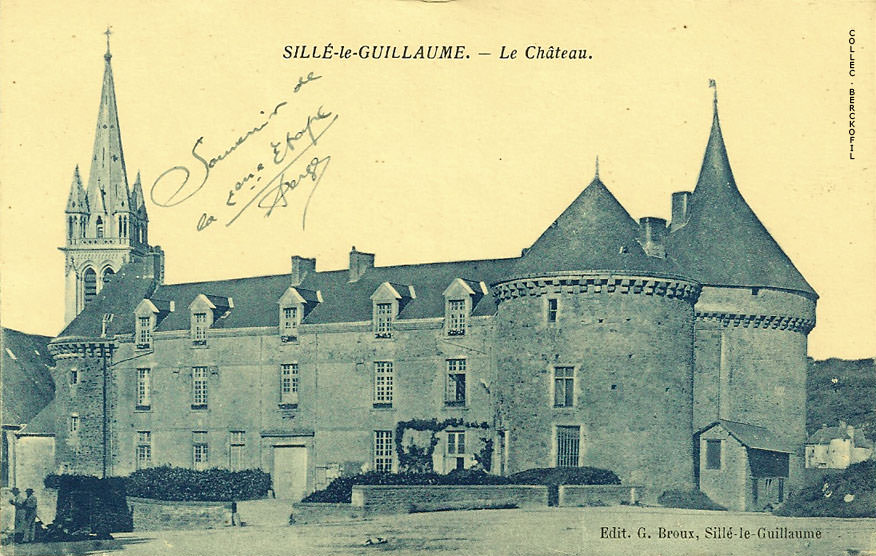 SILLÉ-le-GUILLAUME. — Le Château.
Souvenir de
la 2ème Etape
Serge
COLLEC - BERCKOFIL
Edit. G. Broux, Sillé-le-Guillaume